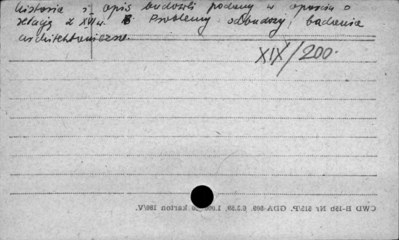 historia i opis budowli podany w oparciu o
relację z XVII w. Problemy odbudowy, badania
architektoniczne.
XIX/200.
CWD B-15b Nr 515/P. GDA-809, 6.2.59, 1.000 karton 180/V.